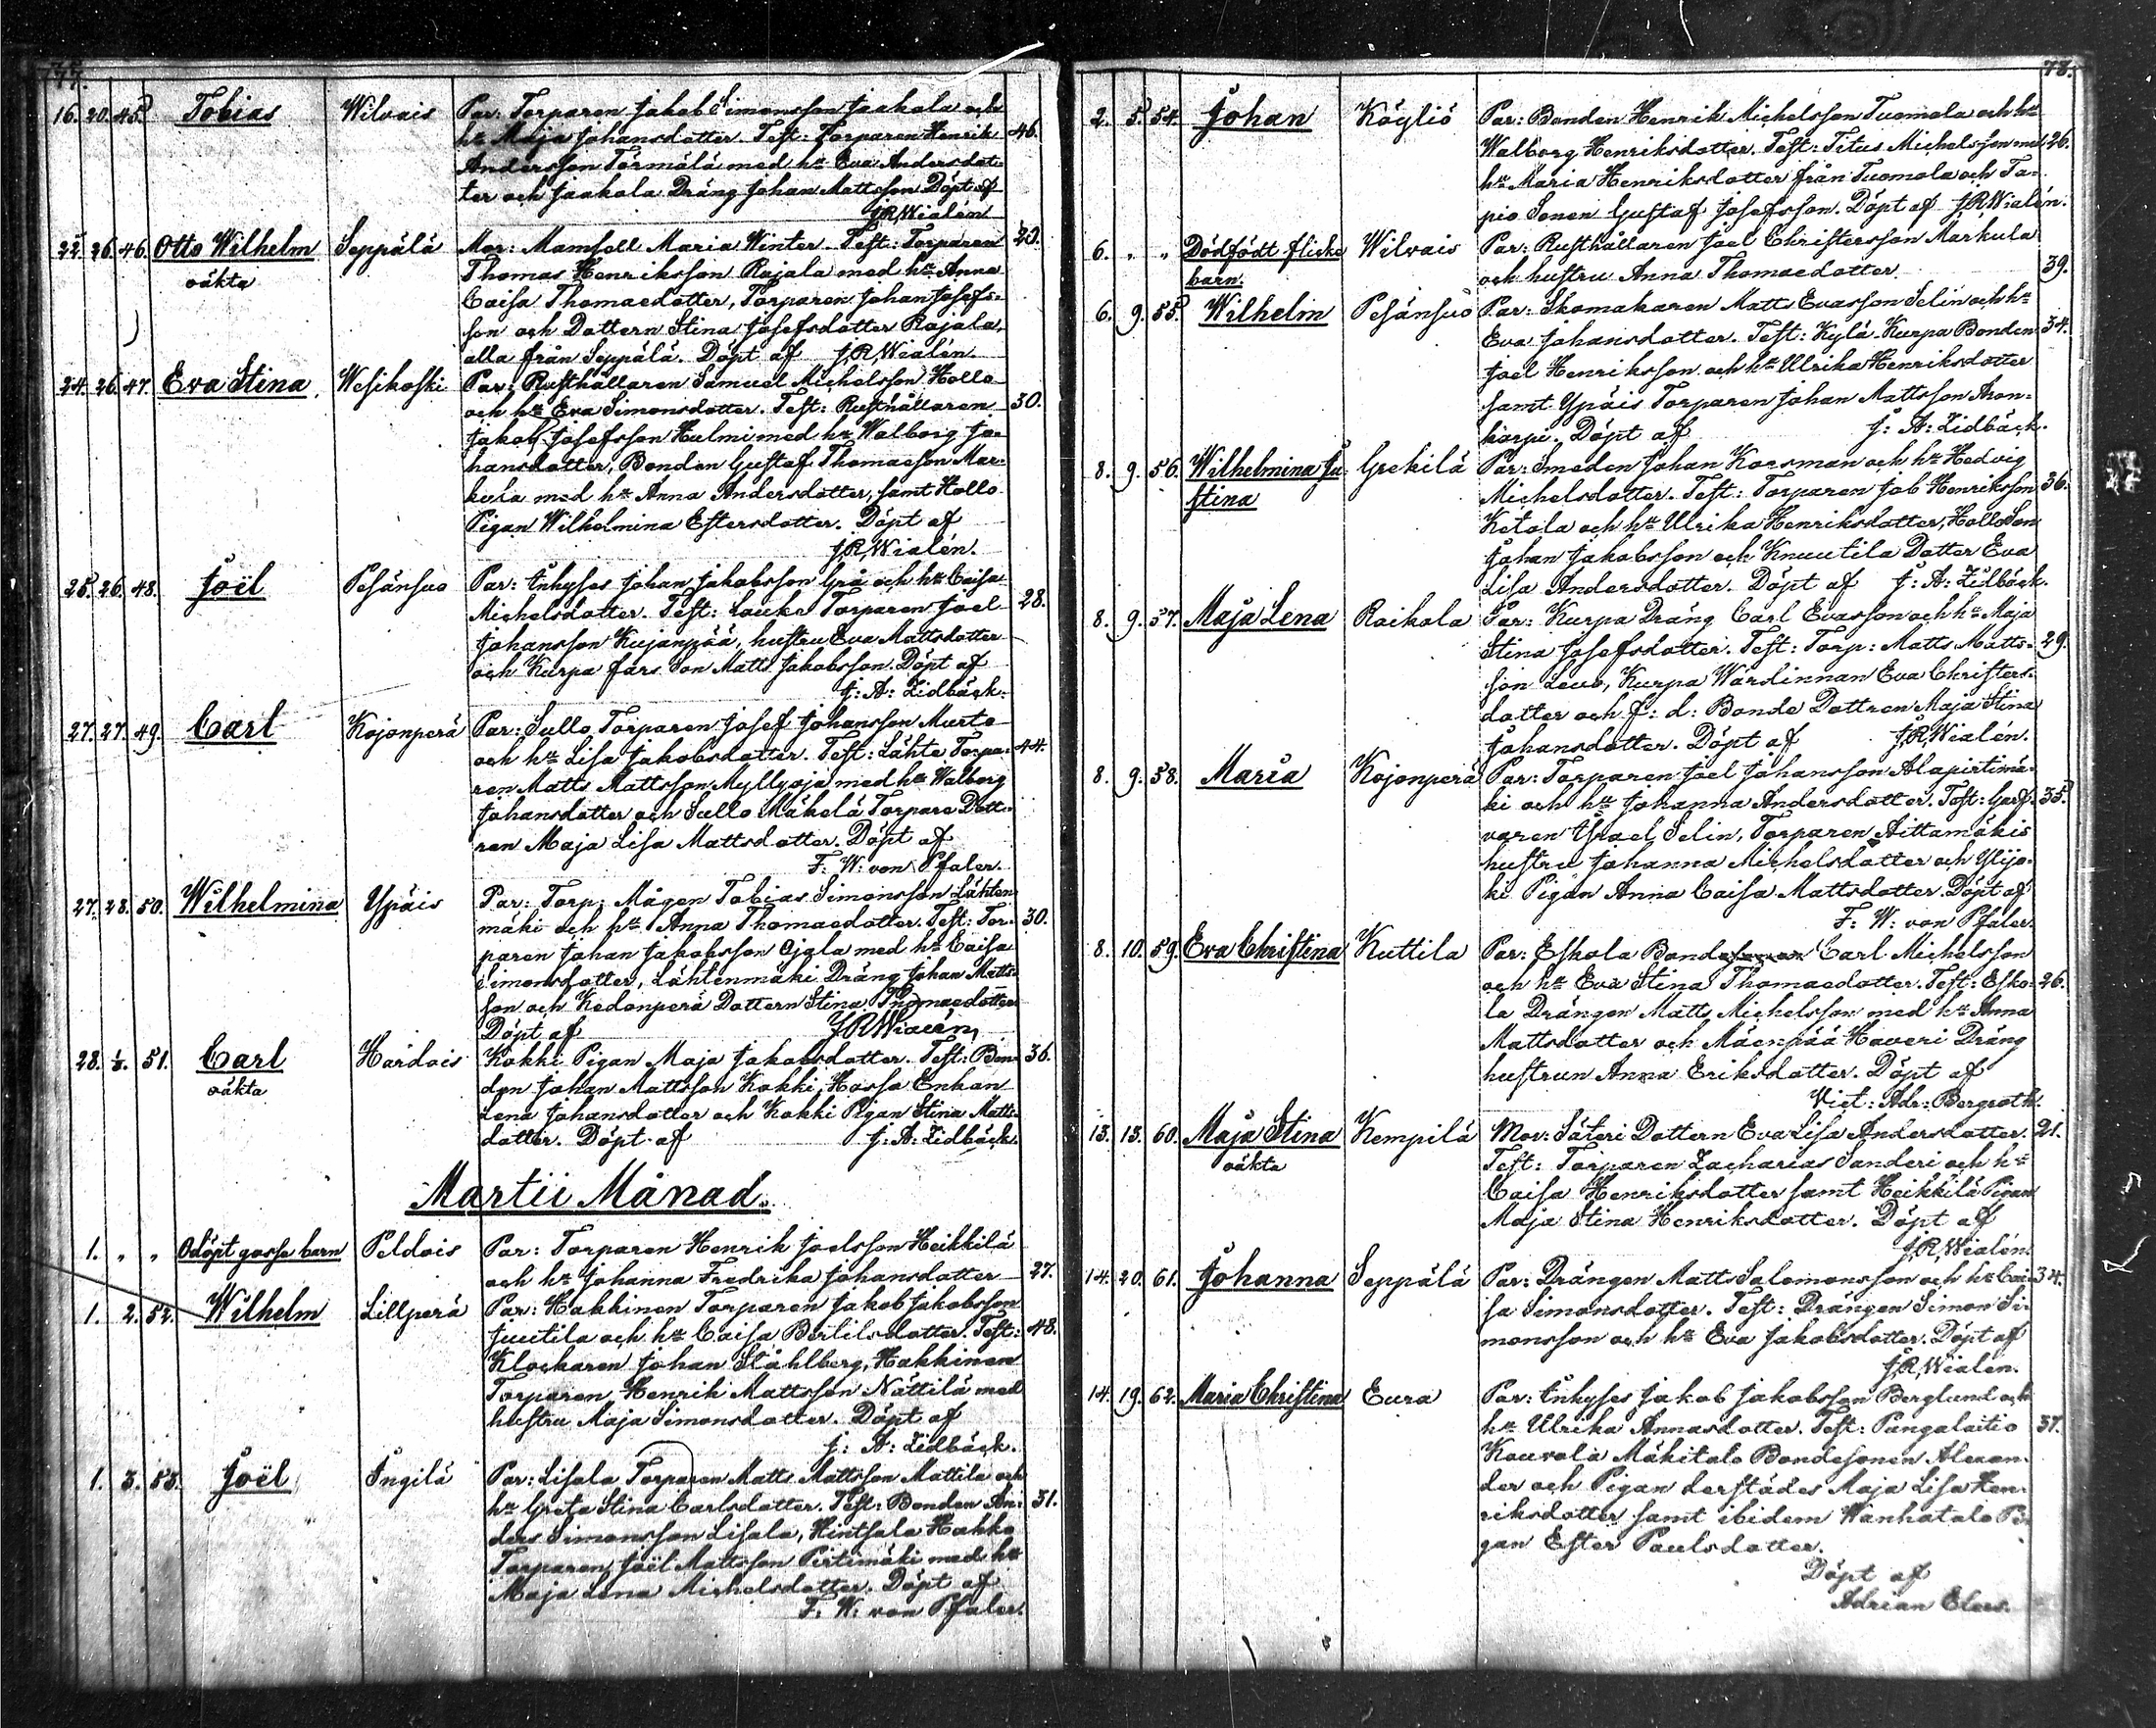 77.
16. 20. 45. Tobias Wilvais Par: Torparen Jakob Simonsson Jaakola och
hu Maija Johansdotter. Test: Torparen Henrik 46.
Andersson Törmälä med hu Eva Andersdot-
ter och Jaakola Dräng Johan Mattsson Döpt af
J.R. Wialén
22. 26. 46. Otto Wilhelm Seppälä Mor: Mamsell Maria Winter. Test: Torparen
oäkta Thomas Henriksson Rajala med hu Anna
Caisa Thomaedotter, Torparen Johan Josefs-
son och Dottern Stina Josefsdotter Rajala,
alla från Seppälä. Döpt af J.R. Wialén.
24. 26. 47. Eva Stina Wesikoski Par: Rusthållaren Samuel Michelsson Hollo
och hu Eva Simonsdotter. Test: Rusthållaren 30.
Jakob Josefsson Hulmi med hu Walborg Jo-
hansdotter, Bonden Gustaf Thomasson Mar-
kula med hu Anna Andersdotter, samt Hollo
Pigan Wilhelmina Estersdotter. Döpt af
J.R. Wialén.
25. 26. 48. Joël Pesänsuo Par: Inhyses Johan Jakobsson Grå och hu Caisa
Michelsdotter. Test: Torparen Joel 28.
Johansson Kujanpää, hustru Eva Mattsdotter
och Kurpa fars Son Matts Jakobsson. Döpt af
J: A: Lidbäck.
27. 27. 49. Carl Kojonperä Par: Sullo Torparen Josef Johansson Murto
och hu Lisa Jakobsdotter. Test: Lähte Torpa- 44.
ren Matts Mattsson Myllyoja med hu Walborg
Johansdotter och Sullo Mäkelä Torpare Dott-
ren Maja Lisa Mattsdotter. Döpt af
F: W: von Pfaler.
27. 28. 50. Wilhelmina Ypäis Par: Torp: Mågen Tobias Simonsson Lähten-
mäki och hu Anna Thomaedotter. Test: Tor- 30.
paren Johan Jakobsson Ojala med hu Caisa
Simonsdotter, Lähtenmäki Dräng Johan Matts-
son och Kedonperä Dottern Stina Thomaedotter
Döpt af J R Wialén,
28. 1/3. 51. Carl Hardois Kokki Pigan Maja Jakobsdotter. Test: Bon- 36.
oäkta den Johan Mattsson Kokki, Hassa Enkan
Lena Johansdotter och Kokki Pigan Stina Matts-
dotter. Döpt af J: A: Lidbäck.
Martii Månad.
1. " " Odöpt gosse barn Peldois Par: Torparen Henrik Joelsson Heikkilä
och hu Johanna Fredrika Johansdotter 27.
1. 2. 52. Wilhelm Lillperä Par: Hakkinen Torparen Jakob Jakobsson
Juutila och hu Caisa Bertilsdotter. Test: 48.
Klockaren Johan Ståhlberg, Hakkinen
Torparen Henrik Mattsson Nättilä med
hustru Maja Simonsdotter. Döpt af
J: A: Lidbäck.
1. 3. 53. Joël Ingilä Par: Lisala Torparen Matts Mattsson Mattila och
hu Greta Stina Carlsdotter. Test: Bonden An- 31.
ders Simonsson Lisala, Hintsala Hakko
Torparen Joël Mattsson Pirtimäki med hu
Maja Lena Michelsdotter. Döpt af
F: W: von Pfaler.
78.
2. 5. 54. Johan Köyliö Par: Bonden Henrik Michelsson Tuomola och hu
Walborg Henriksdotter. Test: Titus Michelsson med 26.
hu Maria Henriksdotter från Tuomola och Ta-
pio Sonen Gustaf Josefsson. Döpt af J.R. Wialén.
6. " " Dödfödt flicke Wilvais Par: Rusthållaren Joel Christersson Markula
barn. och hustru Anna Thomaedotter 39.
6. 9. 55. Wilhelm Pesänsuo Par: Skomakaren Matts Evasson Selin och hu
Eva Johansdotter. Test: Kylä-Kurpa Bonden 34.
Joel Henriksson och hu Ulrika Henriksdotter
samt Ypäis Torparen Johan Mattsson Aron-
karpi. Döpt af J: A: Lidbäck.
8. 9. 56. Wilhelmina Ju- Grekilä Par: Smeden Johan Korsman och hu Hedvig
stina Michelsdotter. Test: Torparen Job Henriksson 36.
Ketola och hu Ulrika Henriksdotter, Hollo Son
Johan Jakobsson och Knuutila Dotter Eva
Lisa Andersdotter. Döpt af J: A: Lidbäck.
8. 9. 57. Maja Lena Raikola Par: Kurpa Dräng Carl Evasson och hu Maja
Stina Josefsdotter. Test: Torp: Matts Matts- 29.
son Levo, Kurpa Wärdinnan Eva Christers-
dotter och f: d: Bonde Dottren Maja Stina
Johansdotter. Döpt af J.R. Wialén.
8. 9. 58. Maria Kojonperä Par: Torparen Joel Johansson Alapirtimä-
ki och hu Johanna Andersdotter. Test: Garf- 35.
varen Israel Selin, Torparen Aittamäkis
hustru Johanna Michelsdotter och Ylijo-
ki Pigan Anna Caisa Mattsdotter. Döpt af
F: W: von Pfaler.
8. 10. 59. Eva Christina Kuttila Par: Eskola Bonde Carl Michelsson
och hu Eva Stina Thomaedotter. Test: Esko- 26.
la Drängen Matts Michelsson med hu Anna
Mattsdotter och Mäenpää Haveri Dräng
hustrun Anna Eriksdotter. Döpt af
Vict: Adr: Bergroth.
13. 13. 60. Maja Stina Kempilä Mor: Säteri Dottern Eva Lisa Andersdotter. 21.
oäkta Test: Torparen Zacharias Sanderi och hu
Caisa Henriksdotter samt Heikkilä Pigan
Maja Stina Henriksdotter. Döpt af
J.R. Wialén.
14. 20. 61. Johanna Seppälä Par: Drängen Matts Salomonsson och hu Cai- 34.
sa Simonsdotter. Test: Drängen Simon Si-
monsson och hu Eva Jakobsdotter. Döpt af
J.R. Wialén.
14. 19. 62. Maria Christina Eura Par: Inhyses Jakob Jakobsson Berglund och
hu Ulrika Annasdotter. Test: Pangalaitio 37.
Kauvola Mäkitalo Bondesonen Alexan-
der och Pigan derstädes Maja Lisa Hen-
riksdotter samt ibidem Wanhatalo Pi-
gan Ester Paulsdotter.
Döpt af
Adrian Elers.